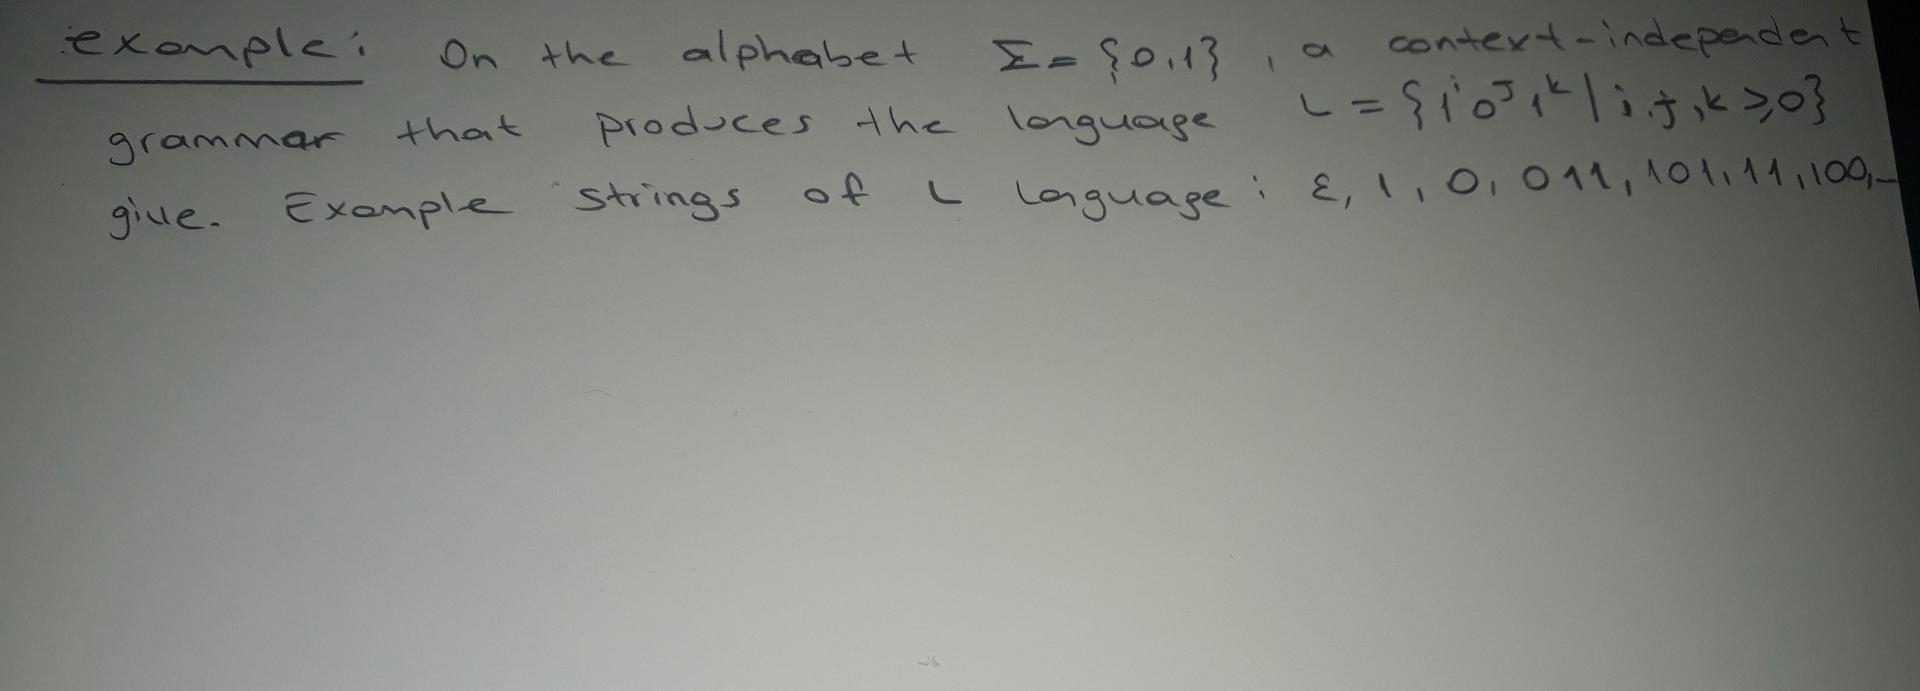 example: On the alphabet Σ = {0,1}, a context-independent
grammar that produces the language L = {1ⁱ0ʲ1ᵏ | i,j,k ≥ 0}
give. Example strings of L language: ε, 1, 0, 011, 101, 11, 100,...